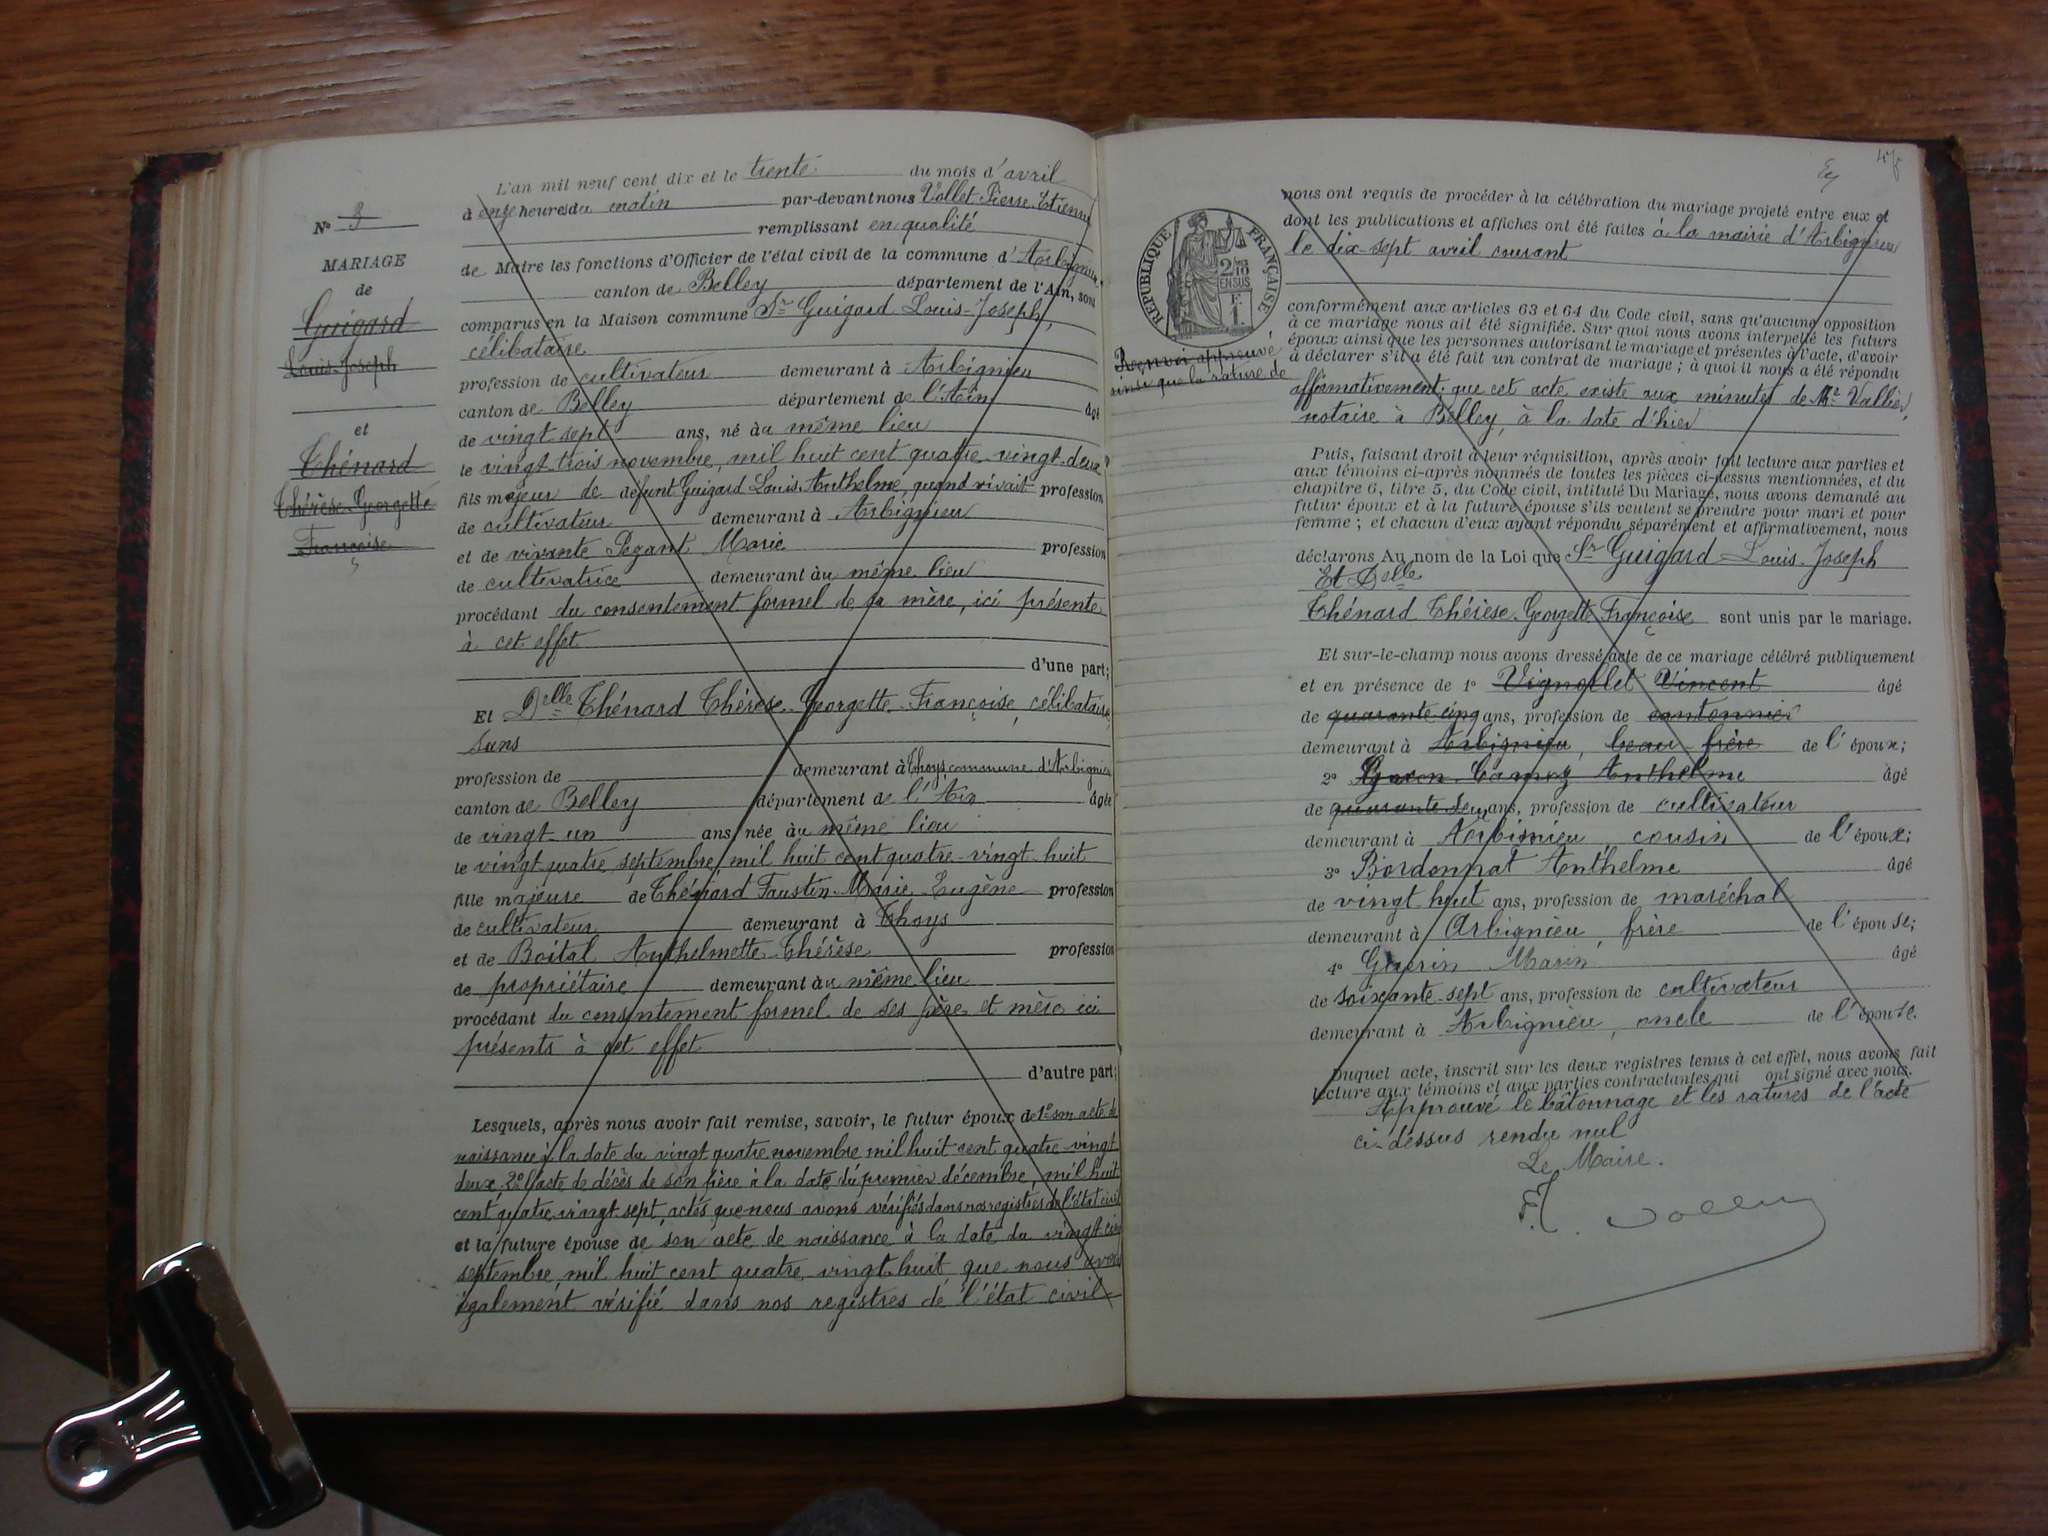 L'an mil neuf cent dix et le trente du mois d'avril
à onze heures du matin par-devant nous Vollet Pierre Etienne
remplissant en qualité
de Maire les fonctions d'Officier de l'état civil de la commune d'Arbignieu
canton de Belley département de l'Ain, sont
comparus en la Maison commune Sr Guigard Louis-Joseph,
célibataire
profession de cultivateur demeurant à Arbignieu
canton de Belley département de l'Ain âgé
de vingt sept ans, né au même lieu
le vingt trois novembre, mil huit cent quatre-vingt-deux
fils majeur de defunt Guigard Louis Anthelme, quand vivait profession
de cultivateur demeurant à Arbignieu
et de vivante Pezant Marie profession
de cultivatrice demeurant au même lieu
procédant du consentement formel de sa mère, ici présente
à cet effet
d'une part;
Et Delle Thénard Thérèse Georgette Françoise, célibataire,
sans
profession de demeurant à Thoys commune d'Arbignieu
canton de Belley département de l'Ain âgée
de vingt-un ans, née au même lieu
le vingt quatre septembre mil huit cent quatre-vingt-huit
fille majeure de Thénard Faustin Marie Eugène profession
de cultivateur demeurant à Thoys
et de Boital Anthelmette Thérèse profession
de propriétaire demeurant au même lieu
procédant du consentement formel de ses père et mère ici
présents à cet effet
d'autre part;
Lesquels, après nous avoir fait remise, savoir, le futur époux de 1° son acte de
naissance à la date du vingt quatre novembre mil huit cent quatre-vingt
deux, 2° l'acte de décès de son père à la date du premier décembre, mil huit
cent quatre vingt sept, actes que nous avons vérifiés dans nos registres de l'état civil
et la future épouse de son acte de naissance à la date du vingt-cinq
septembre, mil huit cent quatre vingt huit que nous avons
également vérifié dans nos registres de l'état civil
N° 8
MARIAGE
de
Guigard
Louis-Joseph
et
Thénard
Thérèse-Georgette
Françoise
nous ont requis de procéder à la célébration du mariage projeté entre eux et
dont les publications et affiches ont été faites à la mairie d'Arbignieu
le dix-sept avril courant
RÉPUBLIQUE FRANÇAISE
2/10
EN SUS
F.
1
conformément aux articles 63 et 64 du Code civil, sans qu'aucune opposition
à ce mariage nous ait été signifiée. Sur quoi nous avons interpellé les futurs
époux ainsi que les personnes autorisant le mariage et présentes à l'acte, d'avoir
à déclarer s'il a été fait un contrat de mariage ; à quoi il nous a été répondu
affirmativement, que cet acte existe aux minutes de Me Vallier,
notaire à Belley, à la date d'hier
approuvé
ainsi que la rature de
Puis, faisant droit à leur réquisition, après avoir fait lecture aux parties et
aux témoins ci-après nommés de toutes les pièces ci-dessus mentionnées, et du
chapitre 6, titre 5, du Code civil, intitulé Du Mariage, nous avons demandé au
futur époux et à la future épouse s'ils veulent se prendre pour mari et pour
femme ; et chacun d'eux ayant répondu séparément et affirmativement, nous
déclarons Au nom de la Loi que Sr Guigard Louis-Joseph
Et Delle
Thénard Thérèse-Georgette Françoise sont unis par le mariage.
Et sur-le-champ nous avons dressé acte de ce mariage célébré publiquement
et en présence de 1° Vignollet Vincent âgé
de quarante cinq ans, profession de cantonnier
demeurant à Arbignieu, beau-frère de l'époux;
2° Camoz Anthelme âgé
de quarante ans, profession de cultivateur
demeurant à Arbignieu cousin de l'époux;
3° Bordonnat Anthelme âgé
de vingt huit ans, profession de maréchal
demeurant à Arbignieu, frère de l'épouse;
4° Guerin Marin âgé
de soixante-sept ans, profession de cultivateur
demeurant à Arbignieu, oncle de l'épouse.
Duquel acte, inscrit sur les deux registres tenus à cet effet, nous avons fait
lecture aux témoins et aux parties contractantes qui ont signé avec nous.
Approuvé le bâtonnage et les ratures de l'acte
ci-dessus rendu nul
Le Maire.
Vollet